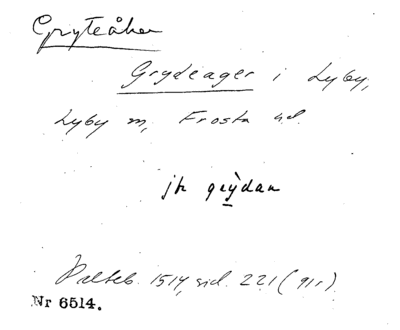 Gryteåker
Grydeager i Lyby,
Lyby sn, Frosta hd.
jfr grỳdan
1514, sid. 221 (91r)
Nr 6514.